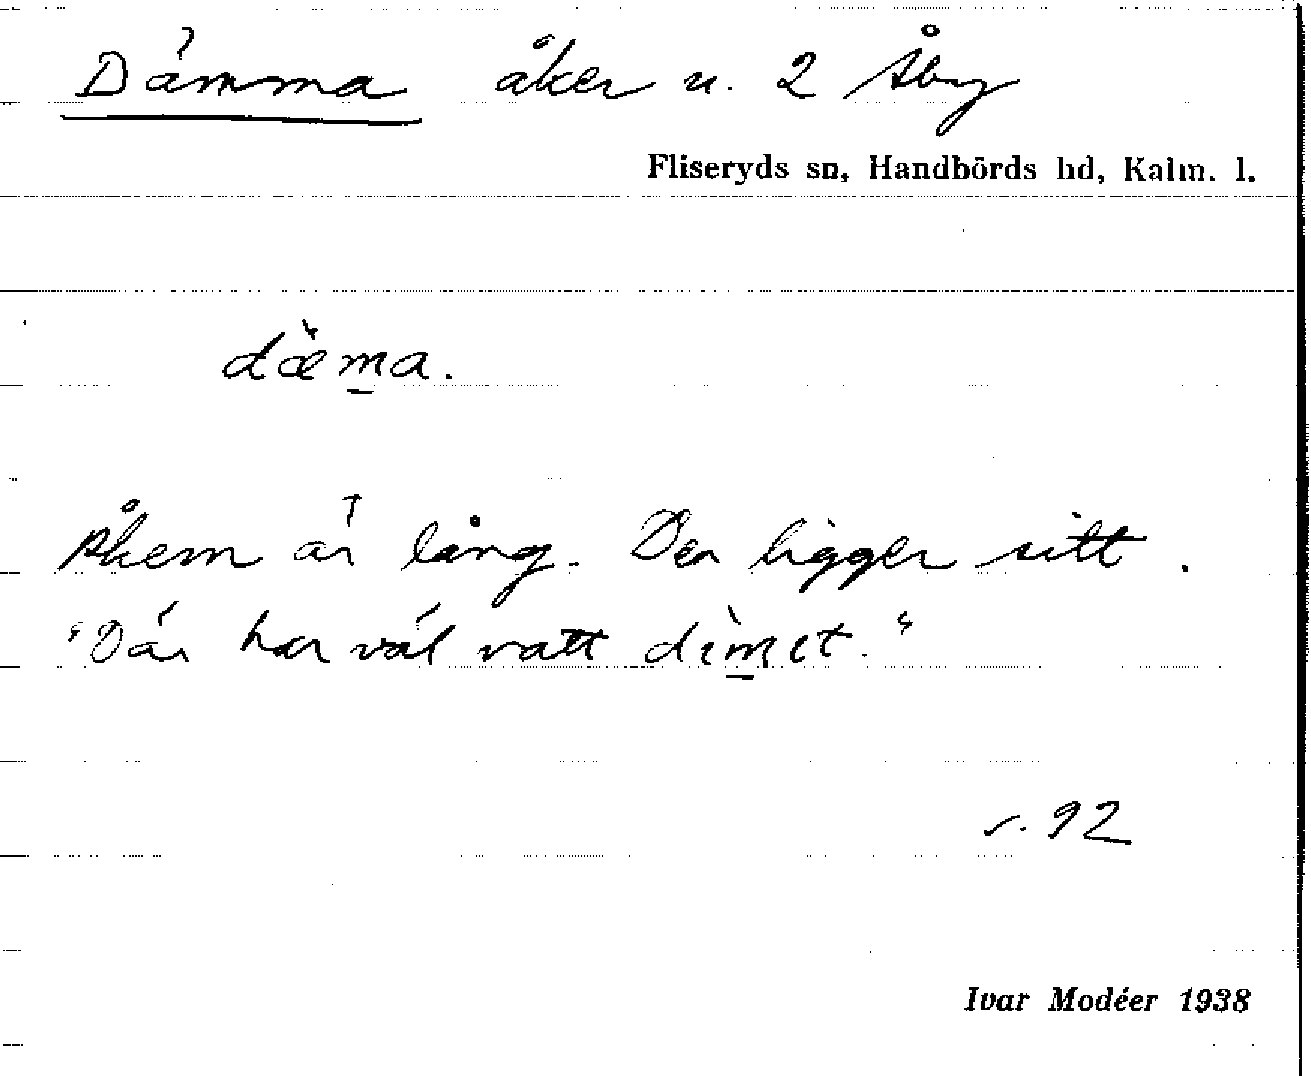 Dämma åker u. 2 Åby
Fliseryds sn, Handbörds hd, Kalm. l.
dæ̀m̲a.
Åkern är lång. Den ligger sitt.
"Där har väl vatt dìm̲et."
s. 92
Ivar Modéer 1938